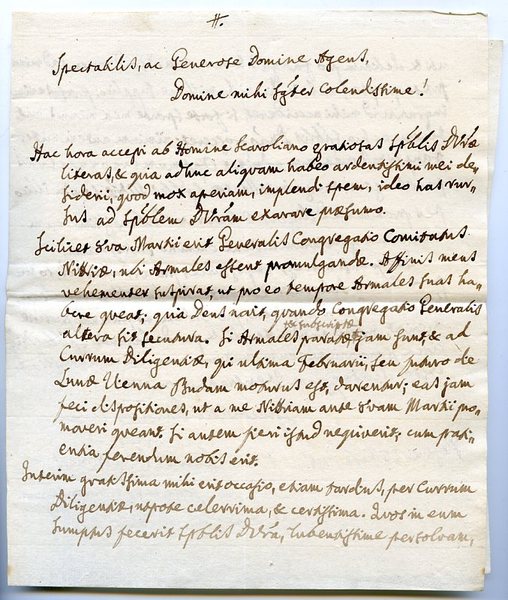 #.
Spectabilis, ac Generose Domine Agens,
Domine mihi singlter Colendissime!
Hac hora accepi ab Homine Szavoliano gratiosas Spblis Dvræ
literas, & quia adhuc aliquam habeo ardentissimi mei de-
siderii, quod mox aperiam, implendi spem, ideo has rur-
sus ad Spblem Dvram exarare præsumo.
Scilicet 8va Martii erit Generalis Congregatio Comitatus
Nittriæ, ubi Armales essent promulgandæ. Affinis meus
vehementer suspirat, ut pro eo tempore Armales suas ha-
bere queat; quia Deus nait, quando Congregatio Generalis
altera sit secutura. Si Armales paratæ & subscriptæ jam sunt, & ad
Currum Diligentiæ, qui ultima Februarii, seu futuro de
Lunæ Vienna Budam moturus est, darentur; eas jam
feci dispositiones, ut a me Nittriam ante 8vam Martii pro-
moveri queant. Si autem fieri istud nequiverit; cum pati-
entia ferendum nobis erit.
Interim gratissima mihi erit occasio, etiam tardius, per Currum
Diligentiæ, utpote celerrima, & certissima. Quos in eum
sumptus fecerit Spblis Dvra, lubentissime persolvam,